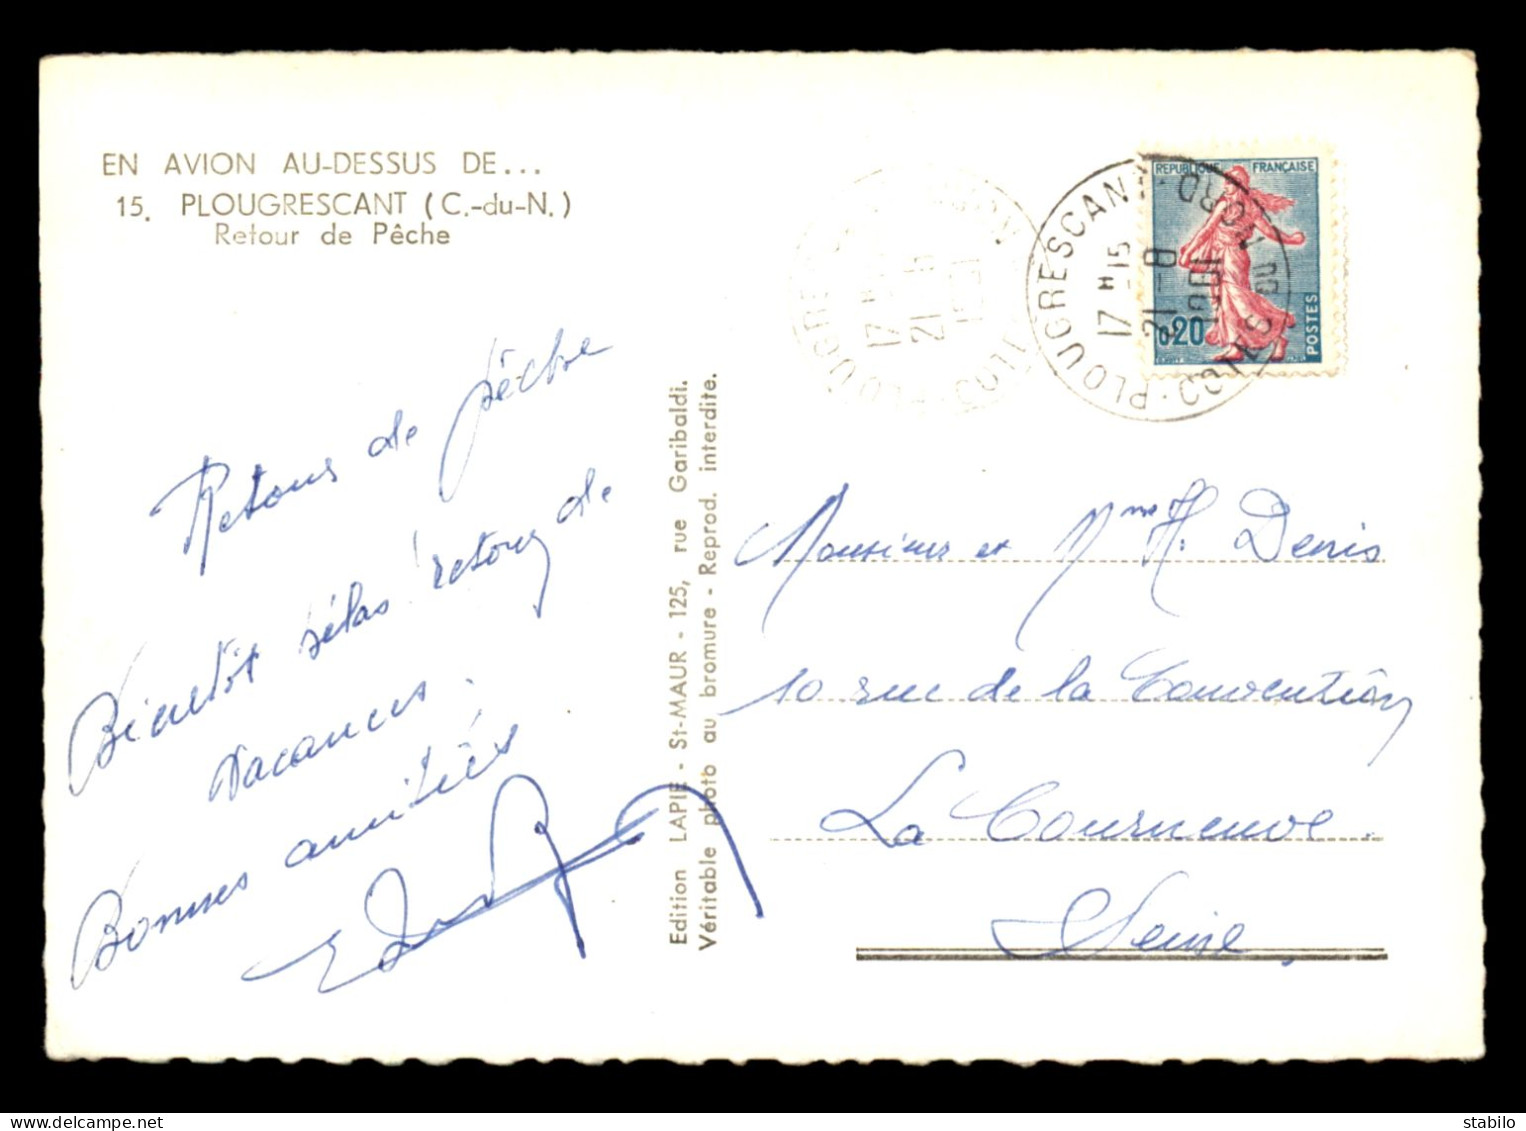 EN AVION AU-DESSUS DE...
15. PLOUGRESCANT (C.-du-N.)
Retour de Pêche
Retour de pêche
Bientôt hélas! retour de
vacances.
Bonnes amitiés
Edition LAPIE - St-MAUR - 125, rue Garibaldi.
Véritable photo au bromure - Reprod. interdite.
REPUBLIQUE FRANÇAISE
0,20
POSTES
PLOUGRESCANT · COTES DU NORD ·
17 H 15
21 - 8
1961
Monsieur et Mme H. Denis
10 rue de la Convention
La Courneuve.
Seine
delcampe.net
stabilo